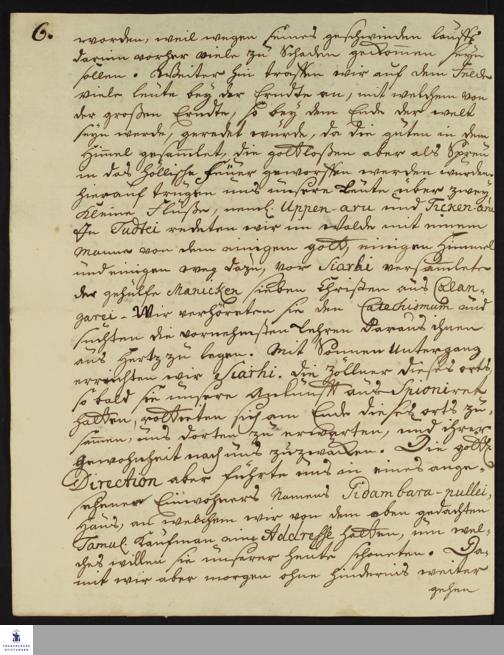 6.
worden, weil wegen seines geschwinden lauffs
darinn vorher viele zu Schaden gekommen seyn
sollen. Weiter hin traffen wir auf dem Felde
viele leute bey der Erndte an, mit welchen von
der großen Erndte, so bey dem Ende der welt
seyn werde, geredet wurde, da die guten in dem
Himmel gesammlet, die gottloßen aber als Spreu
in das höllische Feuer geworffen werden würden.
Hierauf trugen uns unsere Leute über zwey
kleine Flüße, nemL. Uppen-aru und Ticken-aru
In Tudtei redeten wir im Walde mit einem
Manne von dem einigen Gott, einigen Himmel
und einigen weg dazu, vor Siarhi versamlete
der gehülfe Manicken sieben Christen aus Colan-
garei. Wir verhöreten sie den Catechismum und
suchten die vornehmsten Lehren daraus ihnen
ans Hertz zu legen. Mit Sonnen Untergang
erreichten wir Siarhi. Die Zöllner dieses orts
so bald sie unsere Ankunfft aus-Spioniret
hatten, rotteten sich am Ende dieses orts zu-
sammen, uns dorten zu erwarten, und ihrer
Gewohnheit nach uns zuzwacken. Die göttl.
Direction aber führte uns in eines ange-
sehenen Einwohners Namens Tidambara-pullei,
Hauß, an welchen wir von dem oben gedachten
Tamul. Kaufman eine Addresse hatten, um wel-
ches willen sie unserer heute schoneten. Da-
mit wir aber morgen ohne hindernis weiter
gehen
FRANCKESCHE
STIFTUNGEN